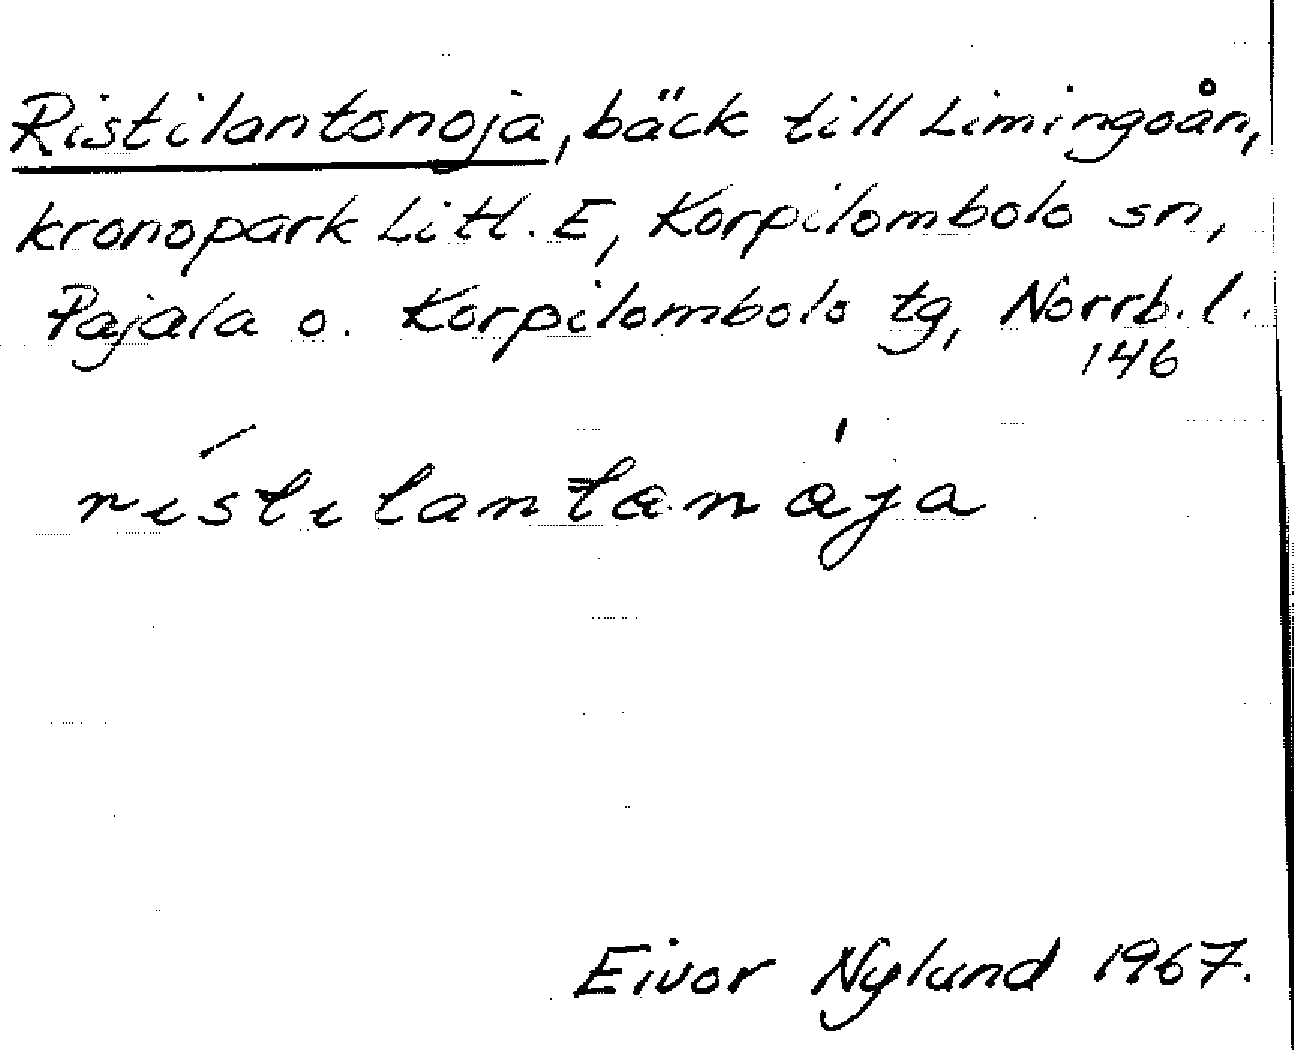 Ristilantonoja, bäck till Limingoån,
kronopark Litt. E, Korpilombolo sn,
Pajala o. Korpilombolo tg, Norrb. l.
146
ristilantanåja
Eivor Nylund 1967.